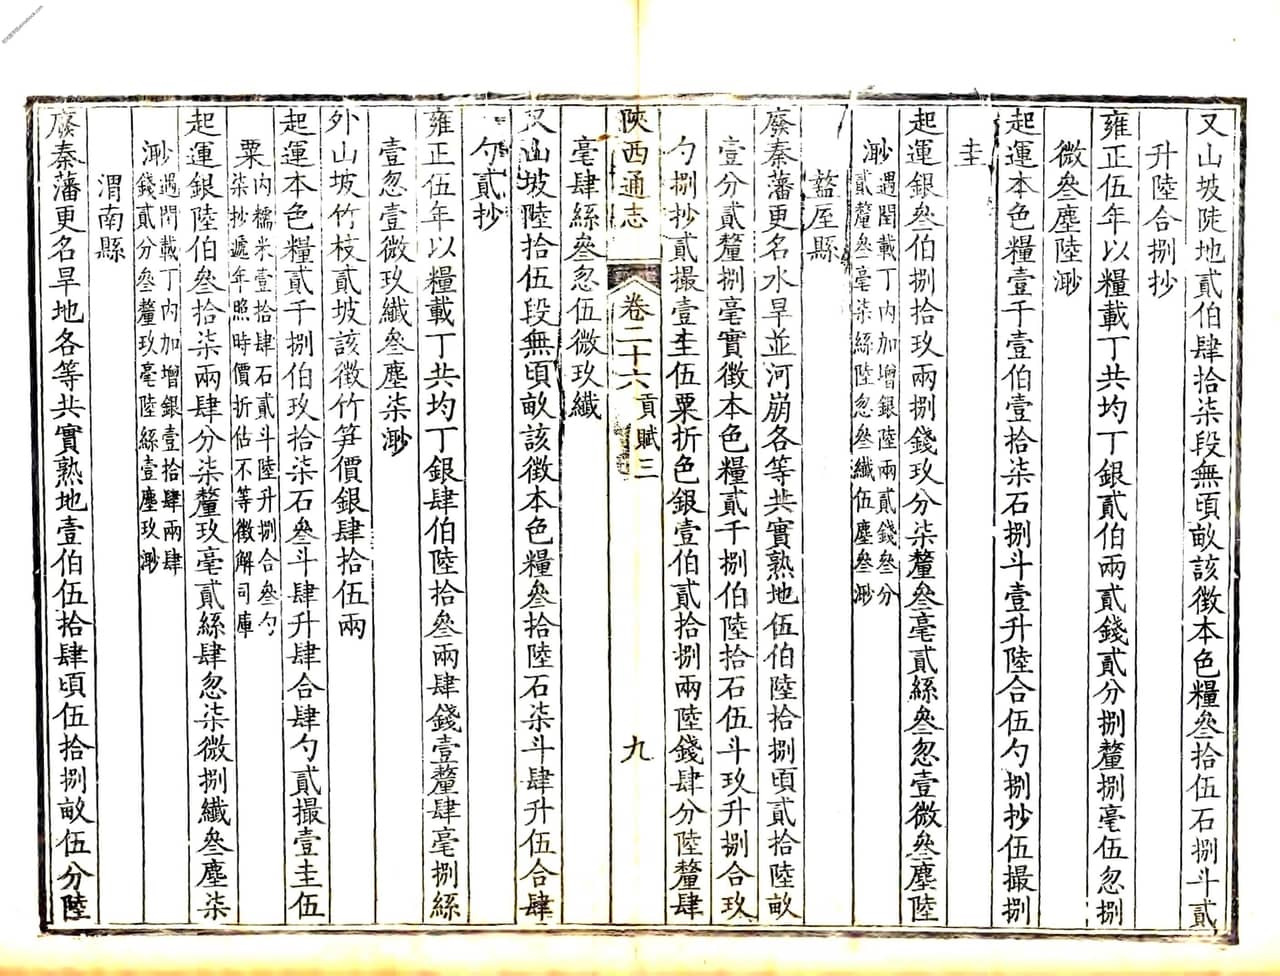 又山坡陡地貳伯肆拾柒段無頃畝該徵本色糧叁拾伍石捌斗貳
升陸合捌抄
雍正伍年以糧載丁共均丁銀貳伯兩貳錢貳分捌釐捌毫伍忽捌
微叁塵陸渺
起運本色糧壹千壹伯壹拾柒石捌斗壹升陸合伍勺捌抄伍撮捌
圭
起運銀叁伯捌拾玖兩捌錢玖分柒釐叁毫貳絲叁忽壹微叁塵陸
渺遇閏載丁內加增銀陸兩貳錢叁分
貳釐叁毫柒絲陸忽叁纖伍塵叁渺
盩厔縣
廢秦藩更名水旱並河崩各等共實熟地伍伯陸拾捌頃貳拾陸畝
壹分貳釐捌毫實徵本色糧貳千捌伯陸拾石伍斗玖升捌合玖
勺捌抄貳撮壹圭伍粟折色銀壹伯貳拾捌兩陸錢肆分陸釐肆
陝西通志 卷二十六 貢賦三 九
毫肆絲叁忽伍微玖纖
又山坡陸拾伍段無頃畝該徵本色糧叁拾陸石柒斗肆升伍合肆
勺貳抄
雍正伍年以糧載丁共均丁銀肆伯陸拾叁兩肆錢壹釐肆毫捌絲
壹忽壹微玖纖叁塵柒渺
外山坡竹枝貳坡該徵竹笋價銀肆拾伍兩
起運本色糧貳千捌伯玖拾柒石叁斗肆升肆合肆勺貳撮壹圭伍
粟內糯米壹拾肆石貳斗陸升捌合叁勺
柒抄遞年照時價折估不等徵解司庫
起運銀陸伯叁拾柒兩肆分柒釐玖毫貳絲肆忽柒微捌纖叁塵柒
渺遇閏載丁內加增銀壹拾肆兩肆
錢貳分叁釐玖毫陸絲壹塵玖渺
渭南縣
廢秦藩更名旱地各等共實熟地壹伯伍拾肆頃伍拾捌畝伍分陸